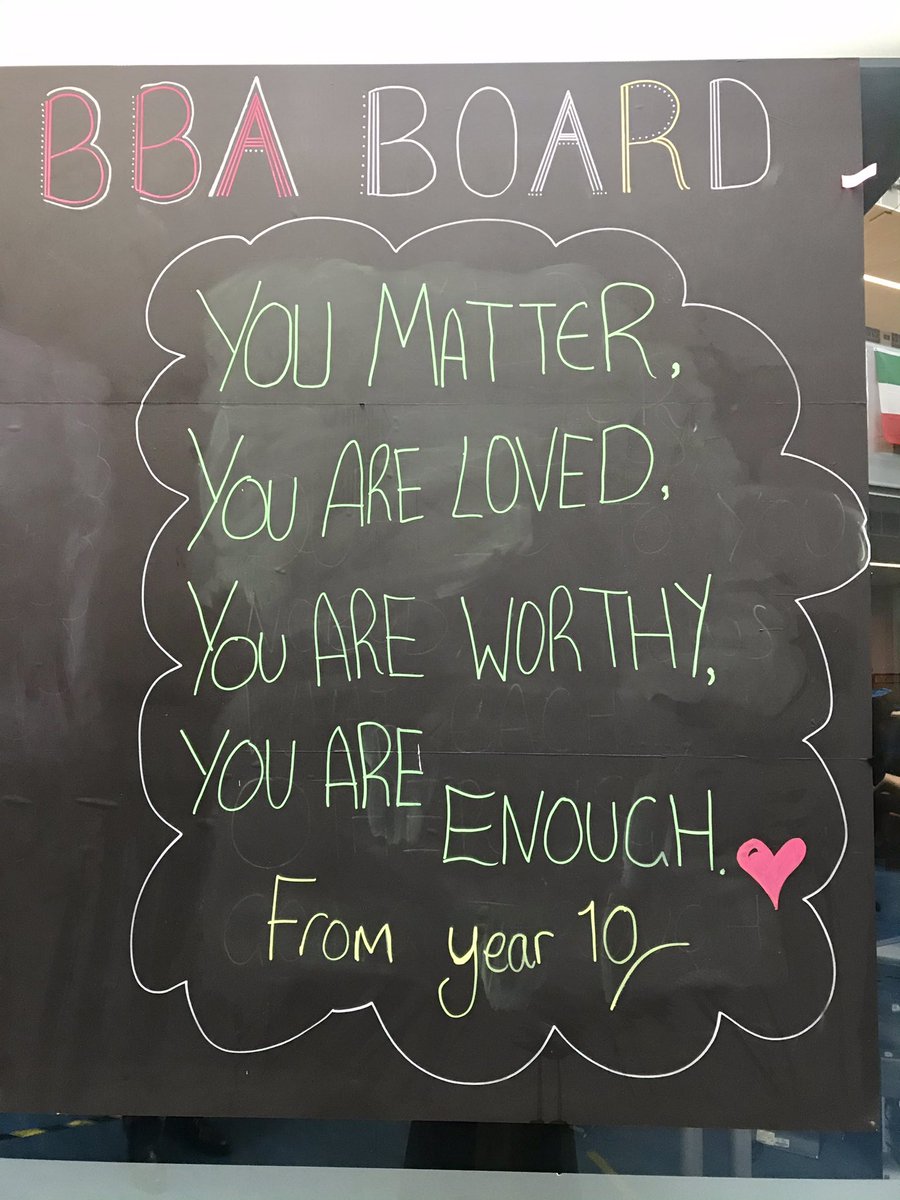 BBA BOARD
YOU MATTER,
YOU ARE LOVED,
YOU ARE WORTHY,
YOU ARE
ENOUGH.
From year 10